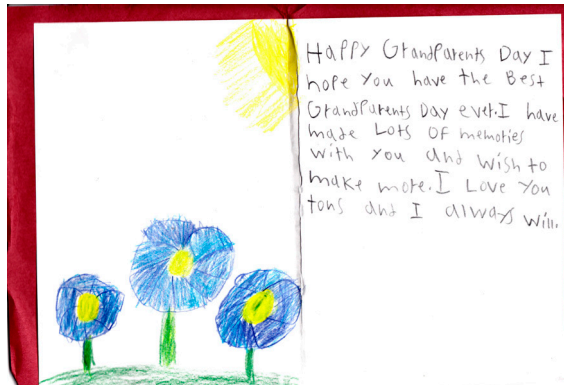 Happy GrandParents Day I
hope you have the Best
GrandParents Day ever. I have
made Lots of memories
with you and wish to
make more. I Love you
tons and I always will.